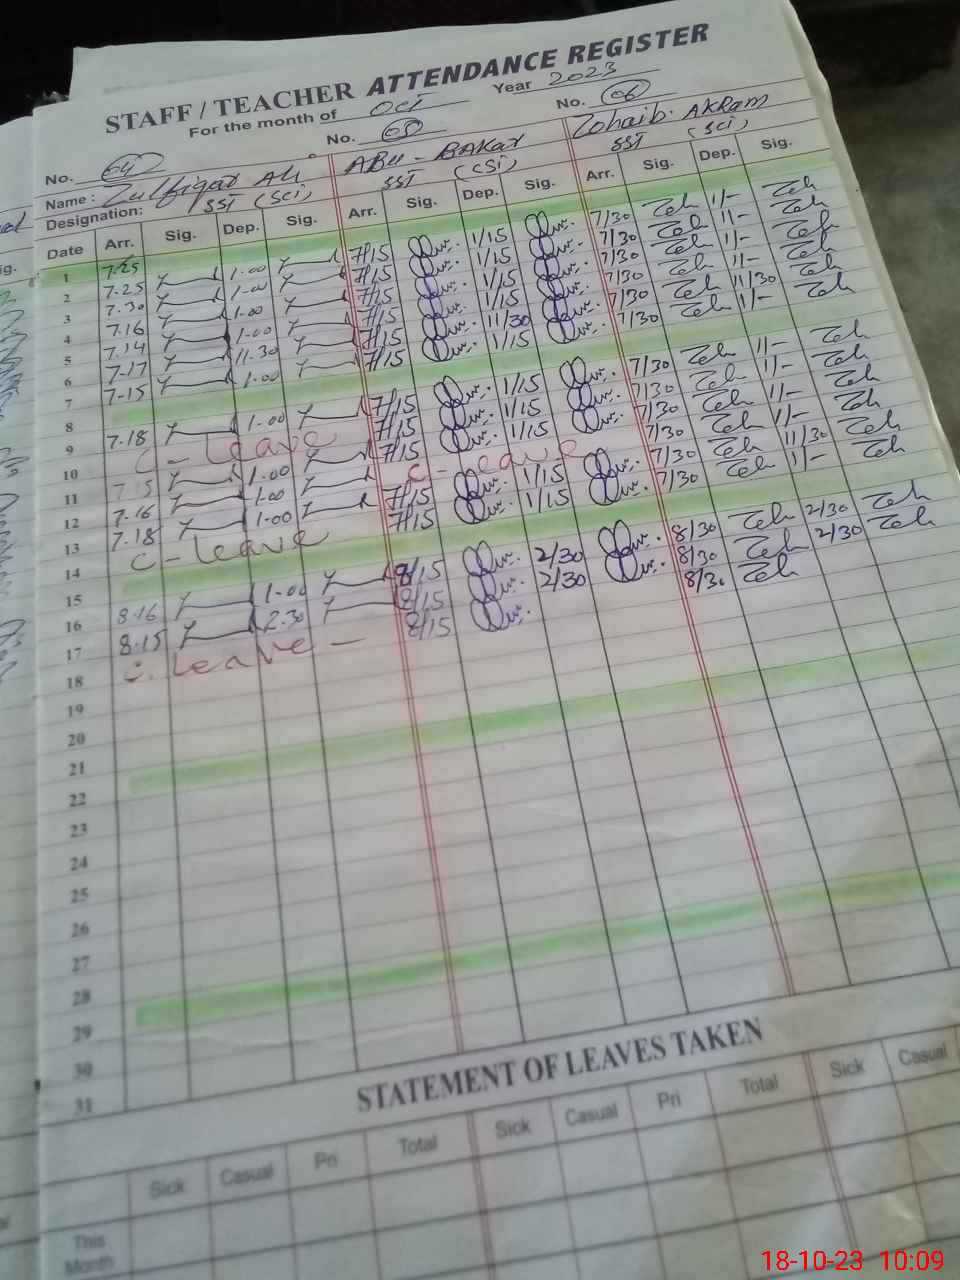 STAFF / TEACHER ATTENDANCE REGISTER
For the month of Oct Year 2023
No. 04 No. 05 No. 06
Name : Zulfiqar Ali ABU - BAKAR Zohaib. AKRam
Designation: SST (Sci) SST (CSi) SST (Sci)
Date Arr. Sig. Dep. Sig. Arr. Sig. Dep. Sig. Arr. Sig. Dep. Sig.
1
2 7.25 1.00 7/15 1/15 7/30 1/-
3 7.30 1.00 7/15 1/15 7/30 1/-
4 7.16 1.00 7/15 1/15 7/30 1/-
5 7.14 1.00 7/15 1/15 7/30 1/-
6 7.17 11.30 7/15 11/30 7/30 11/30
7 7.15 1.00 7/15 1/15 7/30 1/-
8
9 7.18 1.00 7/15 1/15 7/30 1/-
10 C - Leave 7/15 1/15 7/30 1/-
11 7.15 1.00 7/15 1/15 7/30 1/-
12 7.16 1.00 C - Leave 7/30 1/-
13 7.18 1.00 7/15 1/15 7/30 11/30
14 C - Leave 7/15 1/15 7/30 1/-
15
16 8.16 1.00 8/15 2/30 8/30 2/30
17 8.15 2.30 8/15 2/30 8/30 2/30
18 C. Leave - 8/15 8/30
19
20
21
22
23
24
25
26
27
28
29
30
31
STATEMENT OF LEAVES TAKEN
Sick Casual Pri Total Sick Casual Pri Total Sick Casual
This
Month
18-10-23 10:09